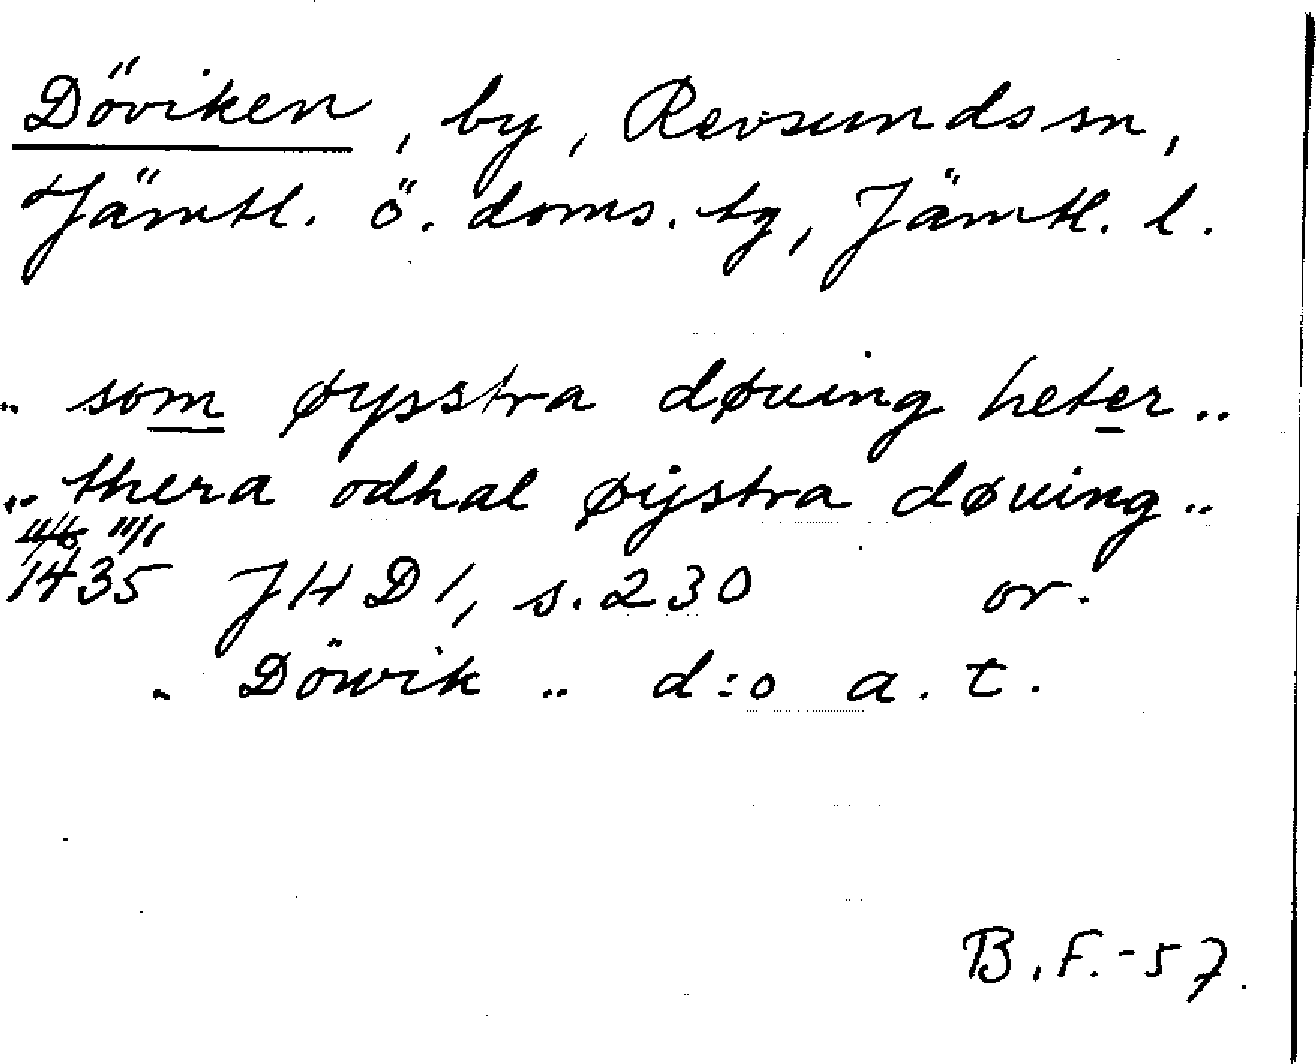 Döviken, by, Revsunds sn,
Jämtl. ö. doms. tg, Jämtl. l.
.. som øysstra døuing heter ..
.. thera odhal øijstra døuing ..
1435 JHD 1, s. 230 or.
.. Döwik .. d:o a. t.
B. F. - 57.